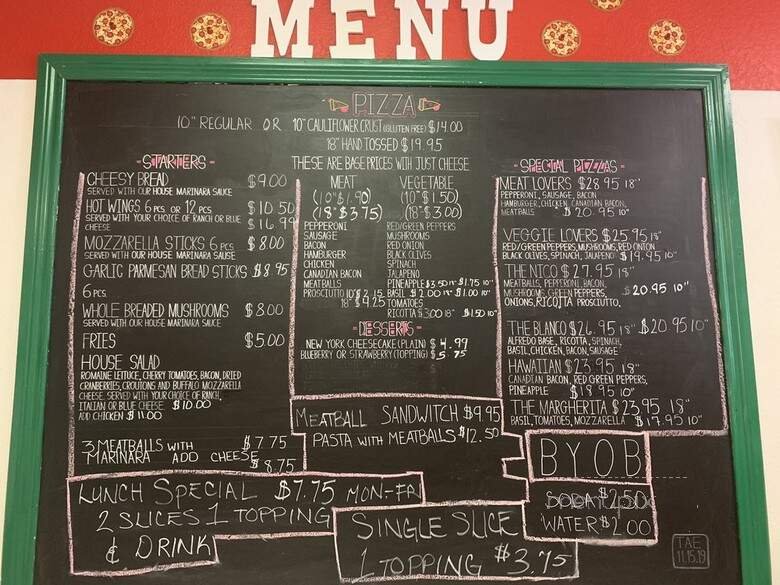 MENU
PIZZA
10" REGULAR OR 10" CAULIFLOWER CRUST (GLUTEN FREE) $14.00
18" HAND TOSSED $19.95
THESE ARE BASE PRICES WITH JUST CHEESE
MEAT VEGETABLE
(10" $1.90) (10" $1.50)
(18" $3.75) (18" $3.00)
PEPPERONI RED/GREEN PEPPERS
SAUSAGE MUSHROOMS
BACON RED ONION
HAMBURGER BLACK OLIVES
CHICKEN SPINACH
CANADIAN BACON JALAPENO
MEATBALLS PINEAPPLE $3.50 18" $1.75 10"
PROSCIUTTO 10" $2.15 BASIL $2.00 18" $1.00 10"
18" $4.25 TOMATOES
RICOTTA $3.00 18" $1.50 10"
- STARTERS -
CHEESY BREAD $9.00
SERVED WITH OUR HOUSE MARINARA SAUCE
HOT WINGS 6 PCS. OR 12 PCS. $10.50
SERVED WITH YOUR CHOICE OF RANCH OR BLUE $16.99
CHEESE
MOZZARELLA STICKS 6 PCS $8.00
SERVED WITH OUR HOUSE MARINARA SAUSE
GARLIC PARMESAN BREAD STICKS $8.95
6 PCS.
WHOLE BREADED MUSHROOMS $8.00
SERVED WITH OUR HOUSE MARINARA SAUCE
FRIES $5.00
HOUSE SALAD
ROMAINE LETTUCE, CHERRY TOMATOES, BACON, DRIED
CRANBERRIES, CROUTONS AND BUFFALO MOZZARELLA
CHEESE. SERVED WITH YOUR CHOICE OF RANCH,
ITALIAN OR BLUE CHEESE. $10.00
ADD CHICKEN $11.00
3 MEATBALLS WITH $7.75
MARINARA ADD CHEESE
$8.75
- DESSERTS -
NEW YORK CHEESECAKE (PLAIN) $4.99
BLUEBERRY OR STRAWBERRY (TOPPING) $5.75
MEATBALL SANDWICH $9.95
PASTA WITH MEATBALLS $12.50
- SPECIAL PIZZAS -
MEAT LOVERS $28.95 18"
PEPPERONI, SAUSAGE, BACON
HAMBURGER, CHICKEN, CANADIAN BACON,
MEATBALLS $20.95 10"
VEGGIE LOVERS $25.95 18"
RED/GREEN PEPPERS, MUSHROOMS, RED ONION
BLACK OLIVES, SPINACH, JALAPENO $19.95 10"
THE NICO $27.95 18"
MEATBALLS, PEPPERONI, BACON,
MUSHROOMS, GREEN PEPPERS, $20.95 10"
ONIONS, RICOTTA PROSCIUTTO.
THE BLANCO $26.95 18" $20.95 10"
ALFREDO BASE, RICOTTA, SPINACH,
BASIL, CHICKEN, BACON, SAUSAGE
HAWAIIAN $23.95 18"
CANADIAN BACON, RED GREEN PEPPERS,
PINEAPPLE $18.95 10"
THE MARGHERITA $23.95 18"
BASIL, TOMATOES, MOZZARELLA $17.95 10"
B.Y.O.B
SODA $2.50
WATER $2.00
LUNCH SPECIAL $7.75 MON-FRI
2 SLICES 1 TOPPING
& DRINK
SINGLE SLICE
1 TOPPING $3.75
TAE
11.15.19